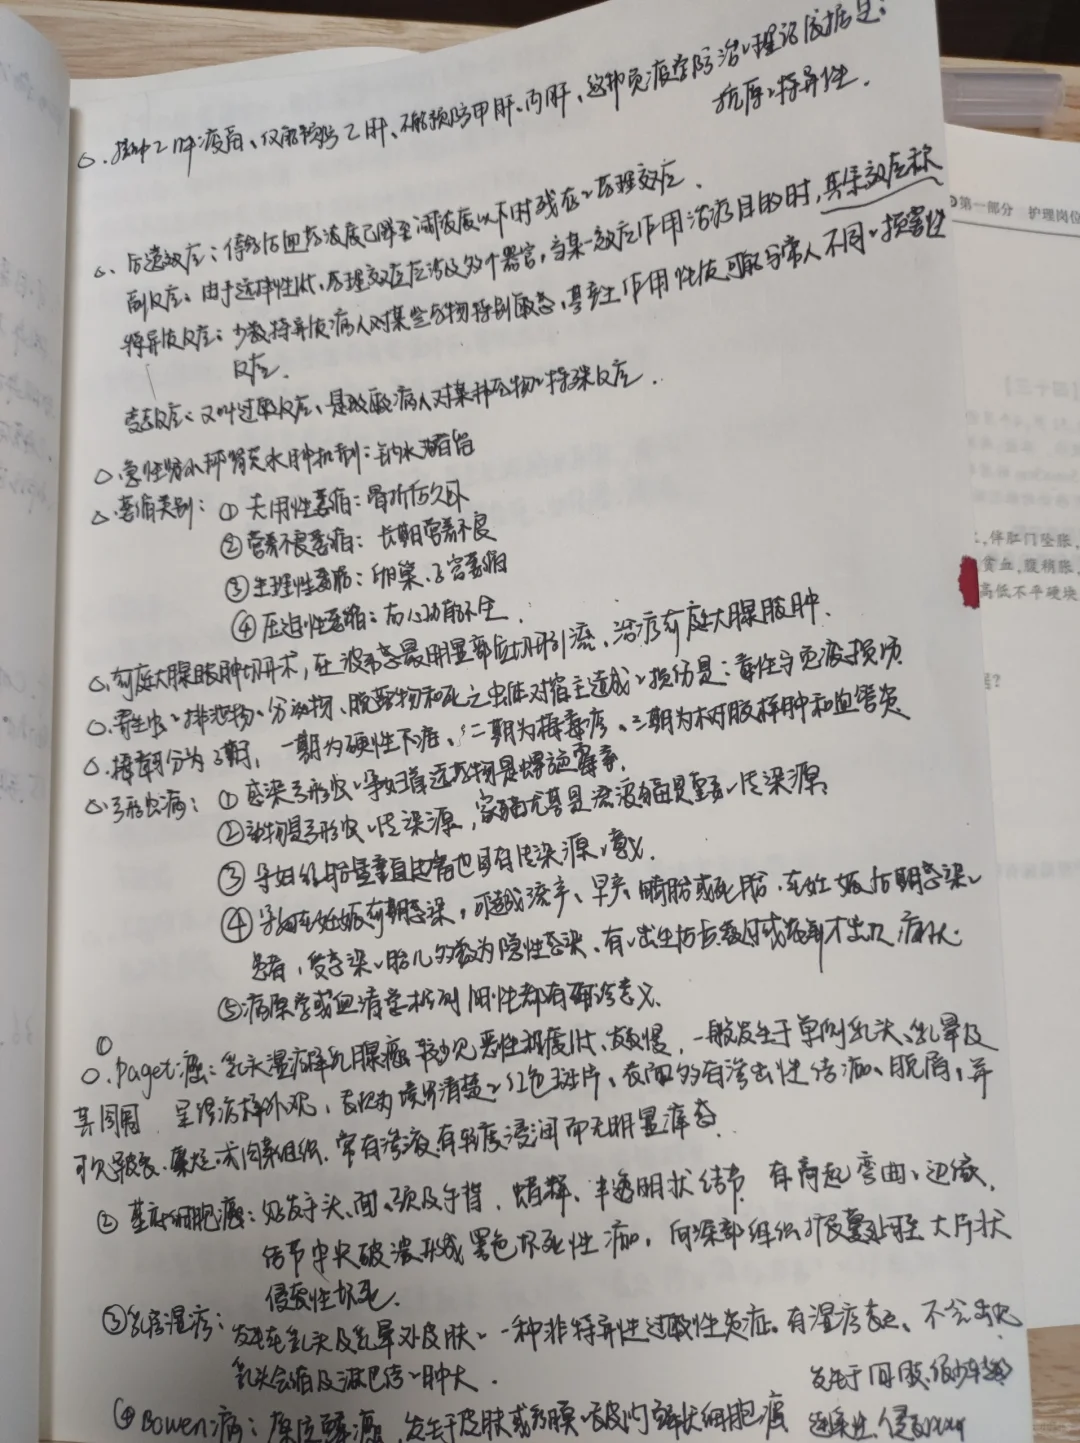 ○. 接种乙肝疫苗、仅能预防乙肝、不能预防甲肝、丙肝、这种免疫学防治的理论依据是:
抗原的特异性.
△. 后遗效应: 停药后血药浓度已降至阈浓度以下时残存的药理效应.
副反应: 由于选择性低、药理效应涉及多个器官, 当某一效应作用治疗目的时, 其余效应称
特异质反应: 少数特异质病人对某些药物特别敏感, 其产生作用性质可能与常人不同的损害性
反应.
变态反应: 又叫过敏反应、是致敏病人对某种药物的特殊反应.
○. 急性肾小球肾炎水肿机制: 钠水潴留
△. 萎缩类别: ① 失用性萎缩: 骨折后久卧
② 营养不良萎缩: 长期营养不良
③ 生理性萎缩: 卵巢、子宫萎缩
④ 压迫性萎缩: 右心功能不全.
○. 前庭大腺脓肿切开术, 在波动感最明显部位切开引流、治疗前庭大腺脓肿.
○. 寄生虫的排泄物、分泌物、脱落物和死亡虫体对宿主造成的损伤是: 毒性与免疫损伤
○. 梅毒可分为3期, 一期为硬性下疳、二期为梅毒疹、三期为树胶样肿和血管炎
○. 弓形虫病: ① 感染弓形虫的孕妇首选药物是螺旋霉素.
② 动物是弓形虫的传染源, 家猫尤其是流浪猫是重要的传染源
③ 孕妇经胎盘垂直传播也具有传染源的意义.
④ 孕妇在妊娠前期感染, 可致流产、早产、畸胎或死胎. 在妊娠后期感染的
患者, 受感染的胎儿多数为隐性感染、有的出生后数月或数年才出现病状.
⑤ 病原学或血清学检测阳性都有确诊意义.
① ○. paget癌: 乳头湿疹样乳腺癌 较少见 恶性程度低、发展慢, 一般发生于单侧乳头、乳晕及
其周围 呈湿疹样外观, 表现为境界清楚的红色斑片、表面多有渗出性结痂、脱屑、并
可见皲裂、糜烂或肉芽组织. 常有渗液, 有轻度浸润而无明显瘙痒.
② 基底细胞癌: 好发于头、面、颈及手背, 蜡样、半透明状结节 有高起弯曲的边缘,
结节中央破溃形成黑色坏死性痂. 向深部组织扩展蔓延至大片状
侵袭性坏死.
③ 乳房湿疹: 发生在乳头及乳晕外皮肤的一种非特异性过敏性炎症. 有湿疹表现、不会出现
乳头回缩及淋巴结的肿大.
④ Bowen病: 原位鳞癌, 发生于皮肤或黏膜的表皮内鳞状细胞癌
第一部分 护理岗位
【四十三】
, 伴肛门坠胀,
贫血, 腹稍胀,
高低不平硬块